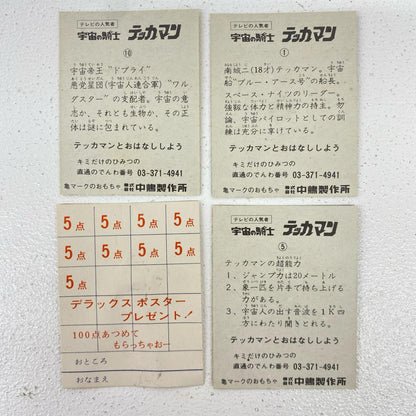 テレビの人気者
宇宙の騎士 テッカマン
⑩
宇宙帝王 "ドブライ"
悪党星団(宇宙人連合軍) "ワル
ダスター" の支配者。宇宙の意
志か、それとも生物か、その正
体は謎に包まれている。
テッカマンとおはなししよう
キミだけのひみつの
直通のでんわ番号 03-371-4941
亀マークのおもちゃ 株式会社 中嶋製作所
テレビの人気者
宇宙の騎士 テッカマン
①
南城二(18才)テッカマン。宇宙
船 "ブルー・アース号" の船長。
スペース・ナイツのリーダー。
強靱な体力と精神力の持主。勿
論、宇宙パイロットとしての訓
練は充分に享けている。
テッカマンとおはなししよう
キミだけのひみつの
直通のでんわ番号 03-371-4941
亀マークのおもちゃ 株式会社 中嶋製作所
5点 5点 5点 5点
5点 5点 5点 5点
5点
デラックス ポスター
プレゼント!
100点あつめて
もらっちゃおー
おところ
おなまえ
テレビの人気者
宇宙の騎士 テッカマン
⑤
テッカマンの超能力
1、ジャンプ力は20メートル
2、象一匹を片手で持ち上げる
力がある。
3、宇宙人の出す音波を1K四
方にわたり聞きとれる。
テッカマンとおはなししよう
キミだけのひみつの
直通のでんわ番号 03-371-4941
亀マークのおもちゃ 株式会社 中嶋製作所